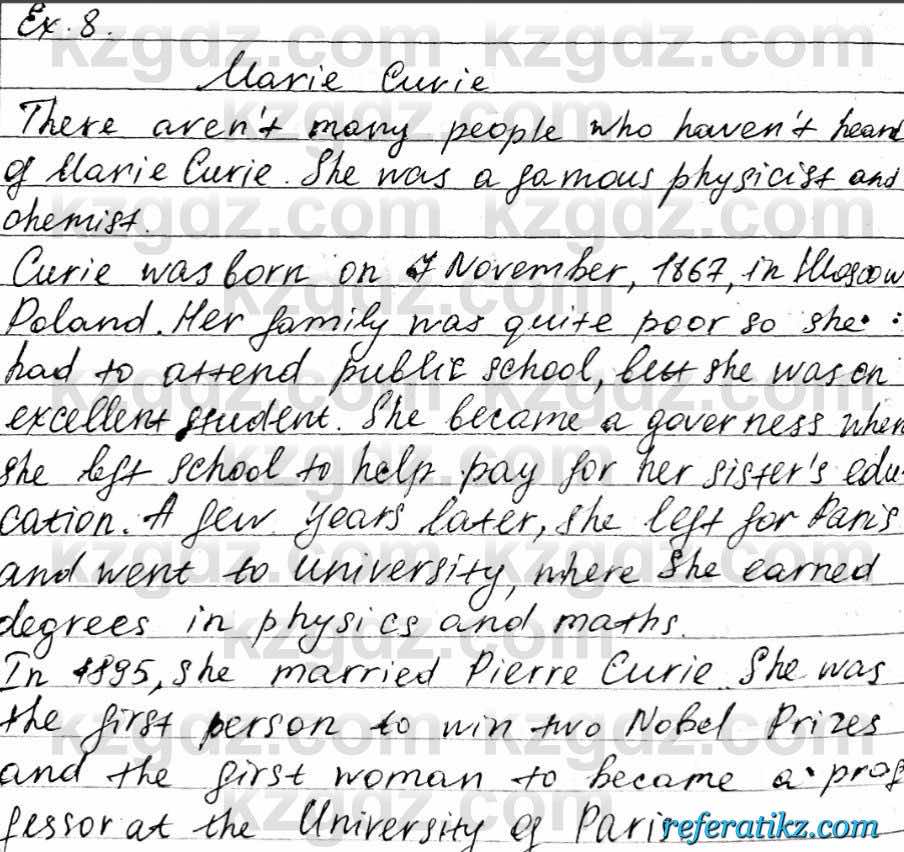 Ex. 8.
Marie Curie
There aren't many people who haven't heard
of Marie Curie. She was a famous physicist and
chemist.
Curie was born on 7 November, 1867, in Moscow
Poland. Her family was quite poor so she
had to attend public school, but she was an
excellent student. She became a governess when
she left school to help pay for her sister's edu-
cation. A few years later, she left for Paris
and went to University, where she earned
degrees in physics and maths.
In 1895, she married Pierre Curie. She was
the first person to win two Nobel Prizes
and the first woman to became a prof
fessor at the University of Paris
referatikz.com